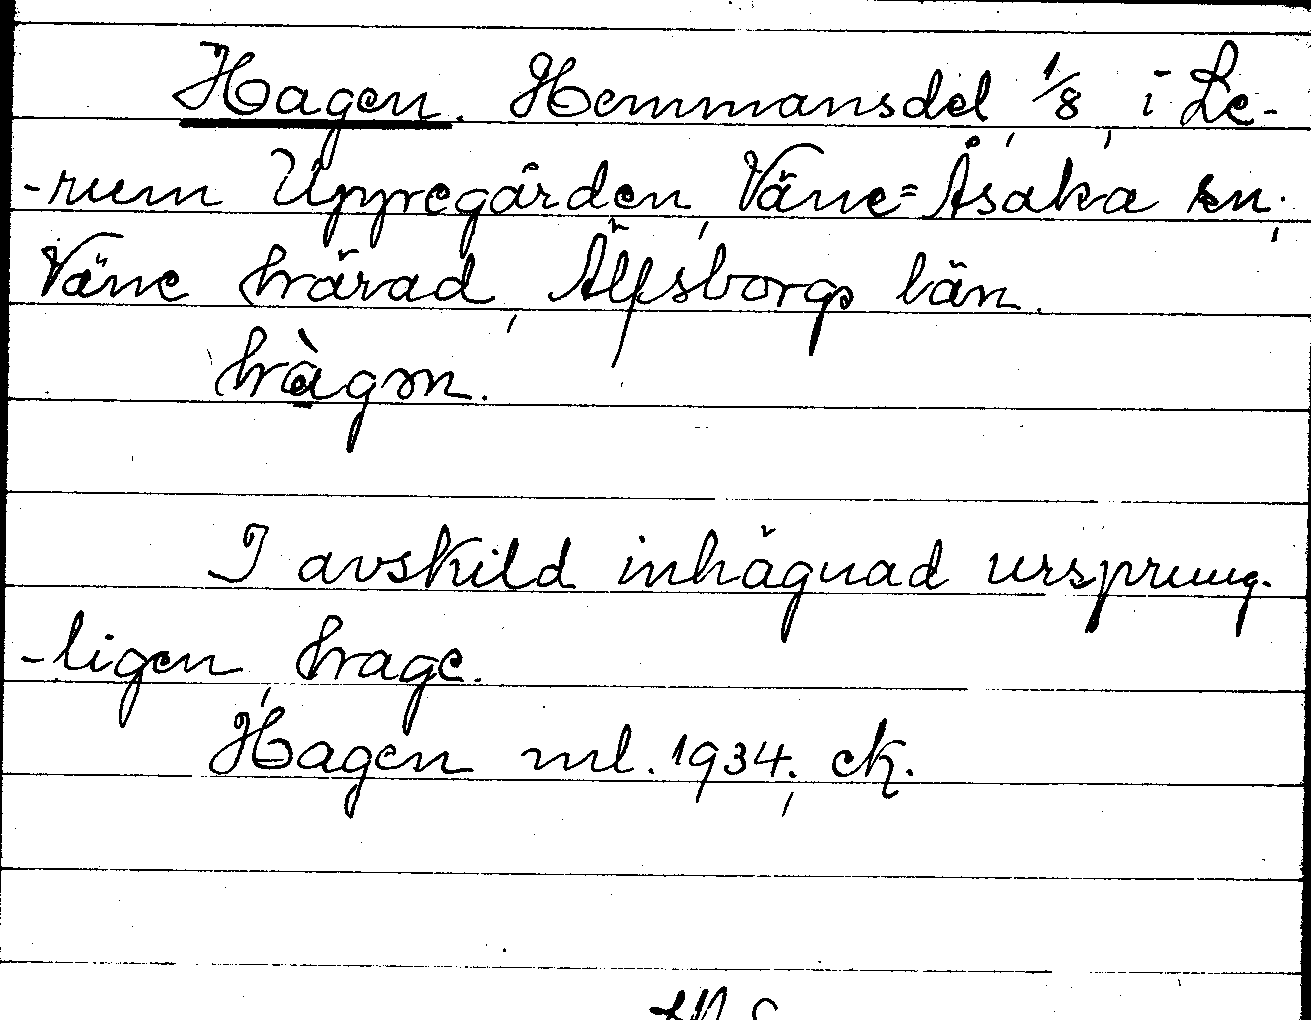 Hagen. Hemmansdel, 1/8, i Le-
-rum Uppregården, Väne=Åsaka sn;
Väne härad, Älfsborgs län.
hàgən.
I avskild inhägnad ursprung-
-ligen, hage.
Hagen ml. 1934; ek.